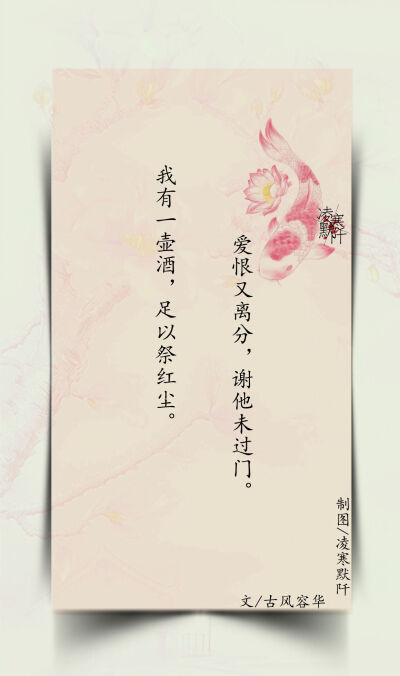 我有一壶酒，足以祭红尘。
爱恨又离分，谢他未过门。
凌寒
默阡
制图/凌寒默阡
文/古风容华